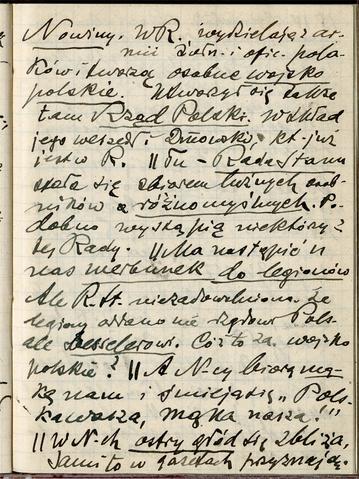 Nowiny. W R. wydzielają z ar-
mii żołn. i ofic. pola-
ków i tworzą osobne wojsko
polskie. Utworzył się także
tam Rząd Polski. W skład
jego weszedł i Dmowski, kt. już
jest w R. || Tu - Rada Stanu
stała się zbiorem luźnych osob-
ników a różnomyślnych. Po-
dobno wystąpią niektórzy z
tej Rady. || Ma nastąpić u
nas werbunek do legionów
Ale R. St. niezadowolniona że
legiony oddano nie rządowi Pols.
ale Beselerowi. Cóż to za wojsko
polskie? || A N-cy biorą mą-
kę nam i śmieją się „Pols-
ka wasza, mąka nasza!"
|| W N-ch ostry głód się zbliża,
Sami to w gazetach przyznają.